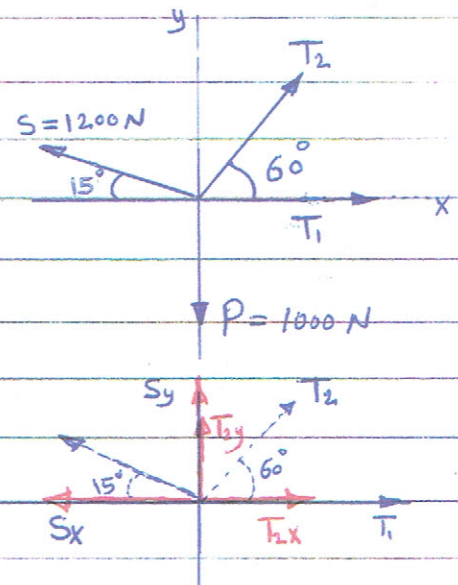 y
T₂
S=1200N
15°
60°
T₁
x
P=1000N
Sy
T₂
T₂y
15°
60°
Sx
T₂x
T₁